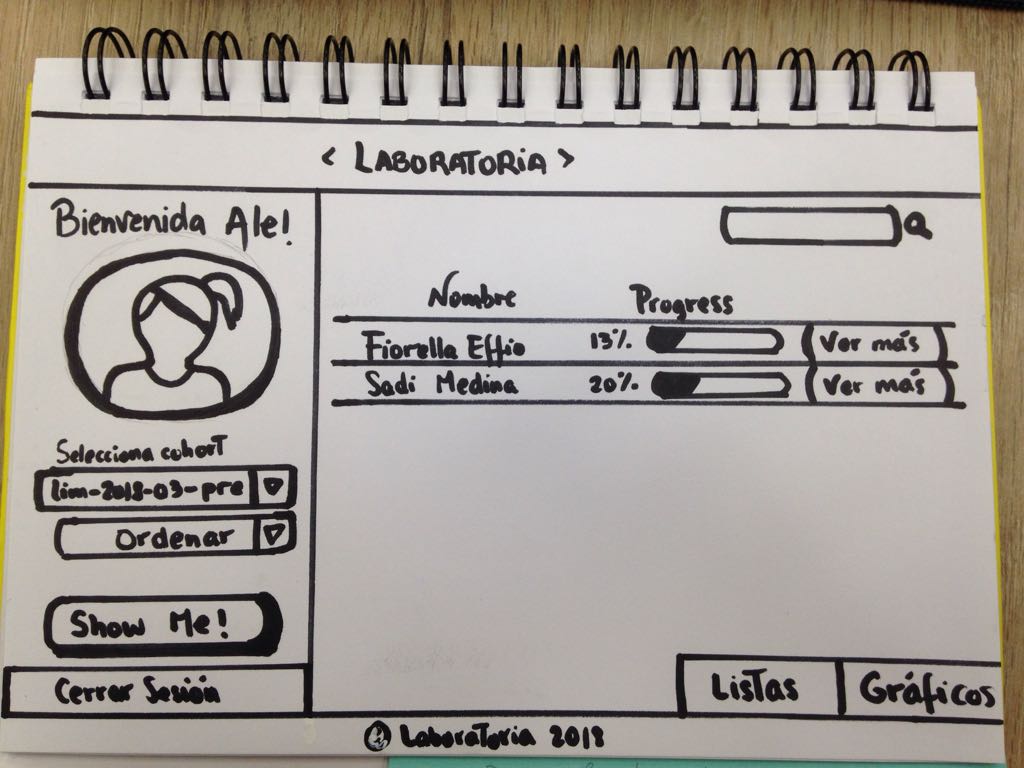 < LABORATORIA >
Bienvenida Ale!
Selecciona cohort
lim-2018-03-pre
Ordenar
Show Me!
Cerrar Sesión
Nombre Progress
Fiorella Effio 13% Ver más
Sadi Medina 20% Ver más
Listas Gráficos
© Laboratoria 2018